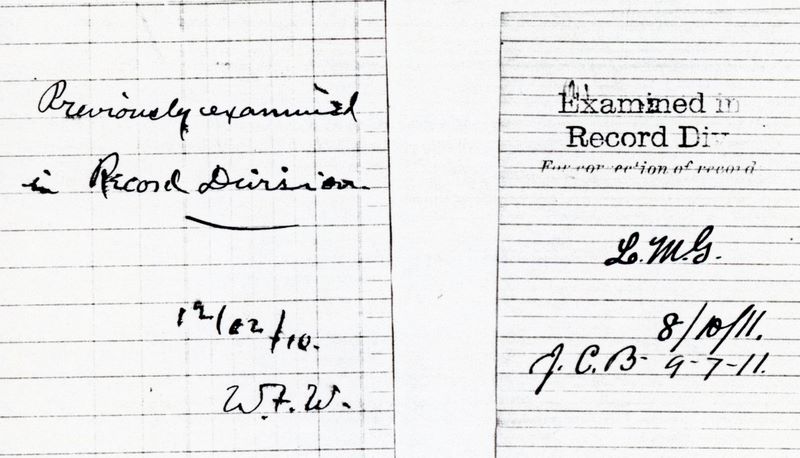 Previously examined
in Record Division.
12/02/10.
W.F.W.
Examined in
Record Div
For correction of record
L.M.G.
8/10/11.
J.C.B- 9-7-11.